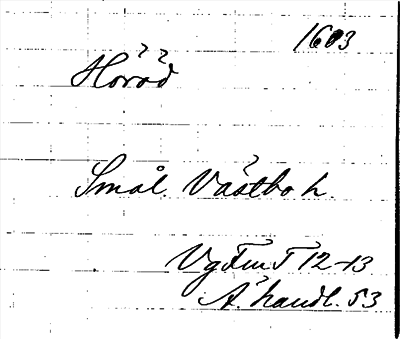 1603
Höröd
Smål. Västbo h.
VgFmT 12-13
Ä. handl. 53